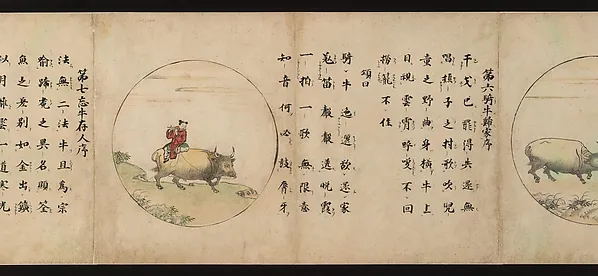 第六騎牛歸家序
干戈已罷得失還無
唱樵子之村歌吹兒
童之野曲身橫牛上
目視雲霄呼喚不回
撈籠不住
頌曰
騎牛迤邐欲還家
羌笛聲聲送晚霞
一拍一歌無限意
知音何必鼓唇牙
第七忘牛存人序
法無二法牛且爲宗
喻蹄兎之異名顯筌
魚之差別如金出鑛
似月離雲一道寒光